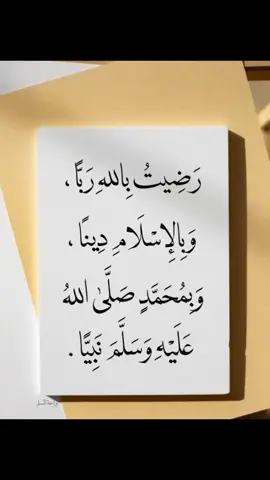 رَضِيتُ بِاللهِ رَبًّا ،
وَبِالإِسْلَامِ دِينًا ،
وَبِمُحَمَّدٍ صَلَّىٰ اللهُ
عَلَيْهِ وَسَلَّمَ نَبِيًّا .